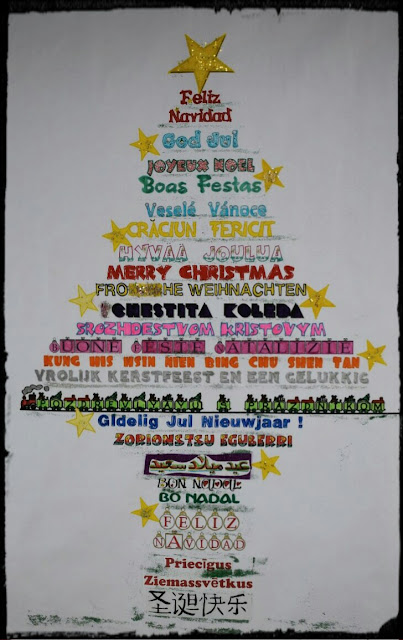 Feliz
Navidad
God Jul
JOYEUX NOEL
Boas Festas
Veselé Vánoce
CRĂCIUN FERICIT
HYVAA JOULUA
MERRY CHRISTMAS
WEIHNACHTEN
CHESTITA KOLEDA
SROZHDESTVOM KRISTOVYM
BUONE FESTE NATALIZIE
KUNG HIS HSIN NIEN BING CHU SHEN TAN
VROLIJK KERSTFEEST EN EEN GELUKKIG
POZDREVLYAYU S PRAZDNIKOM
Gldelig Jul Nieuwjaar !
EGUBERRI
عيد ميلاد سعيد
BON NADAL
BO NADAL
FELIZ
NAVIDAD
Priecigus
Ziemassvetkus
圣诞快乐